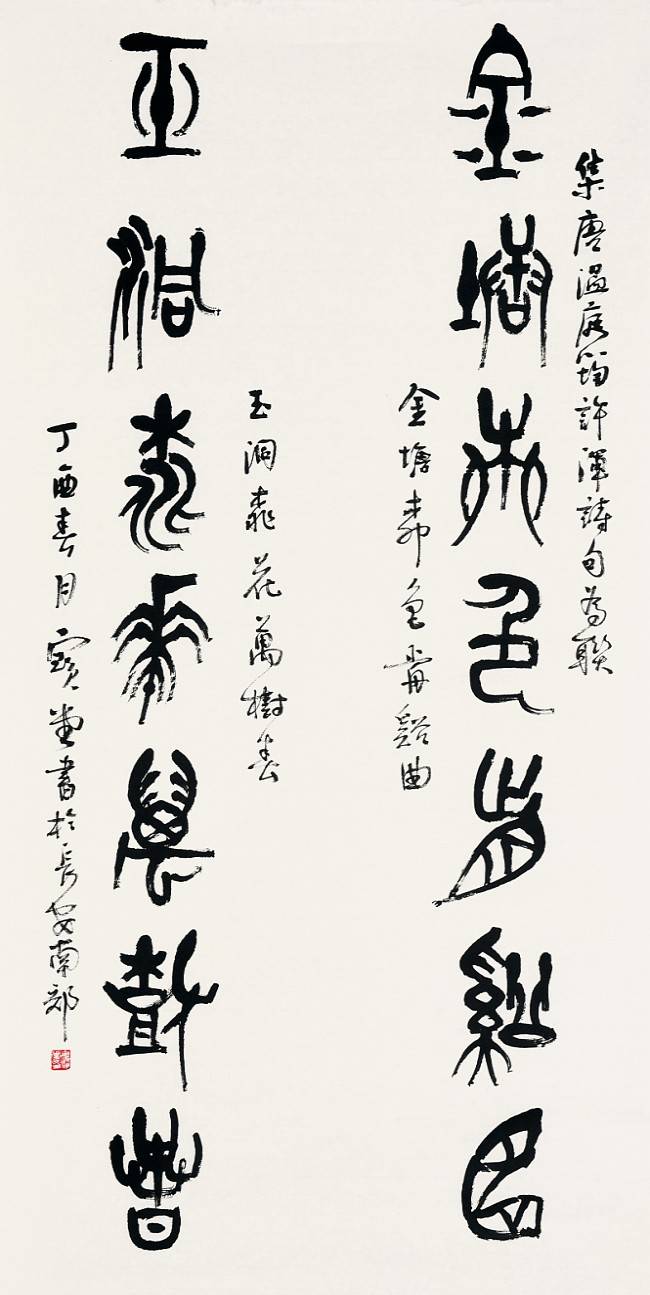 集唐温庭筠許渾詩句為聯
金塘桺色歬谿曲
金塘桺色歬谿曲
玉洞桃花萬樹春
玉洞桃花萬樹春
丁酉春月寶堂書於長安南郊